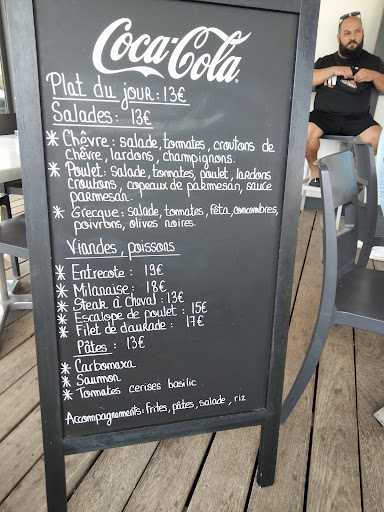 Coca-Cola
Plat du jour : 13€
Salades : 13€
* Chêvre : salade, tomates, croutons de
chêvre, lardons, champignons.
* Poulet : salade, tomates, poulet, lardons
croutons, copeaux de parmesan, sauce
parmesan.
* Grecque : salade, tomates, Féta, concombres,
poivrons, olives noires.
Viandes, poissons
* Entrecote : 19€
* Milanaise : 18€
* Steak à cheval : 13€
* Escalope de poulet : 15€
* Filet de daurade : 17€
Pâtes : 13€
* Carbonara
* Saumon
* Tomates cerises basilic
Accompagnements : Frites, pâtes, salade, riz